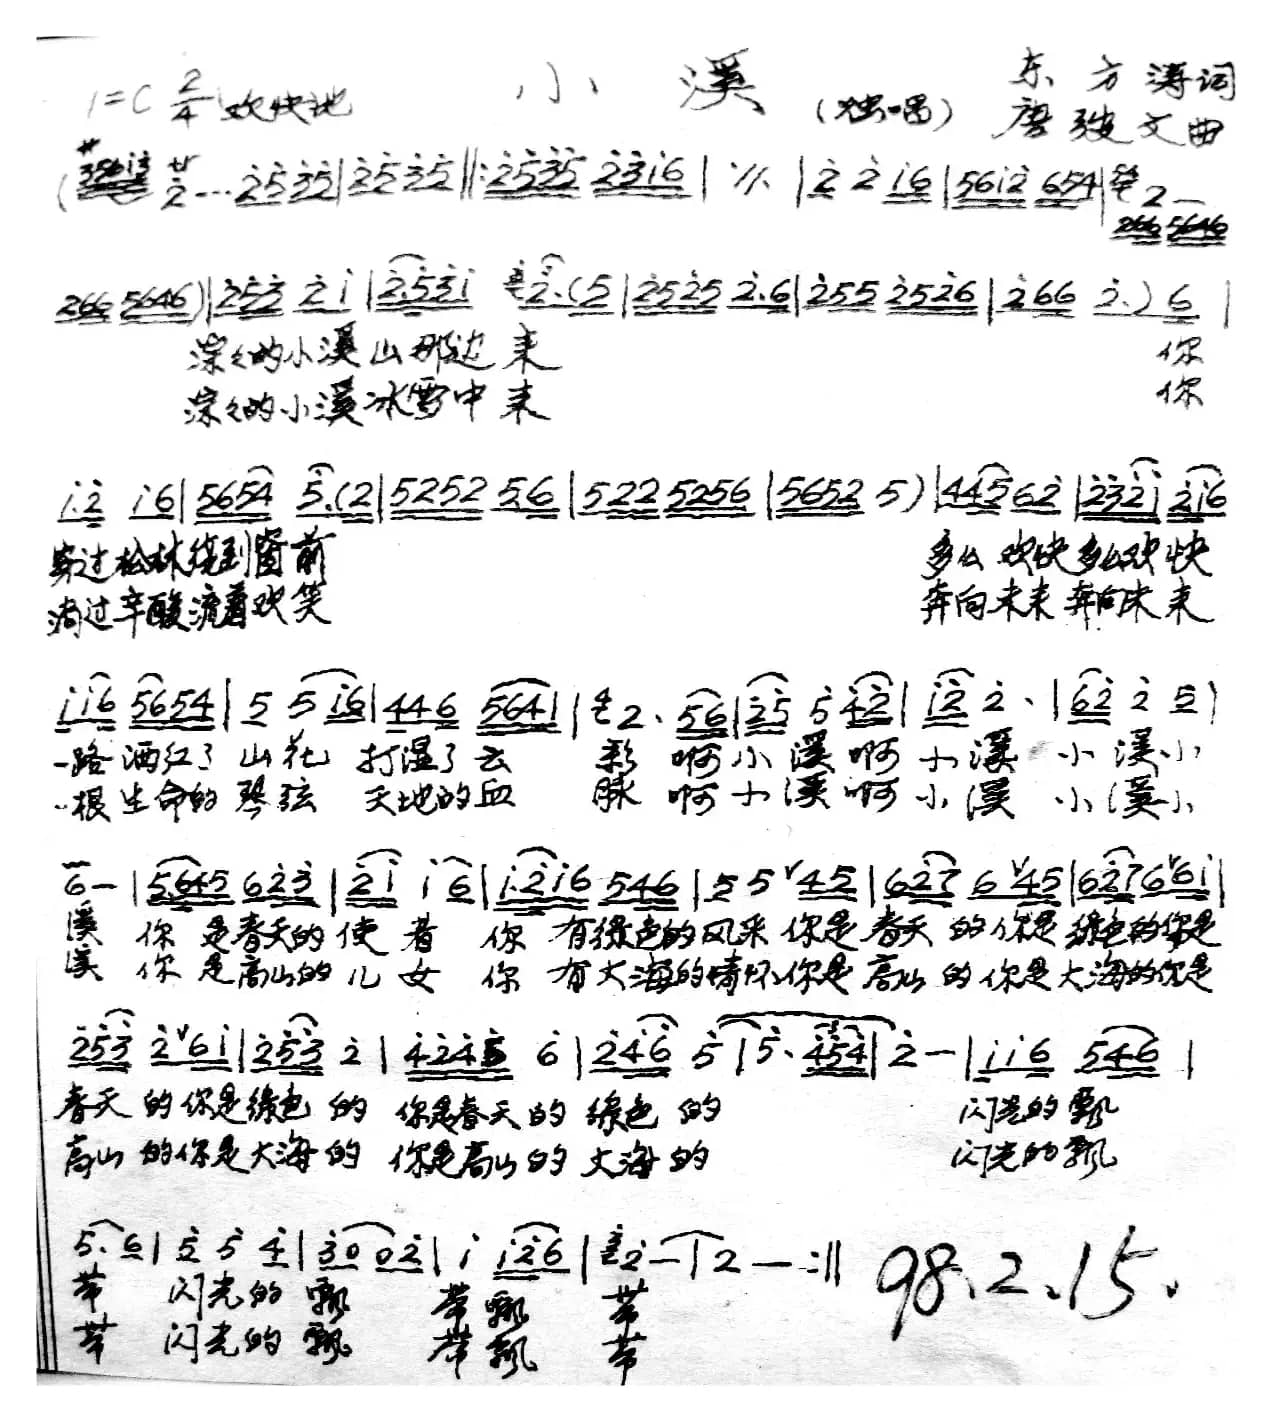 小溪
1=C 2/4 欢快地
(独唱)
东方涛词
唐 文曲
2̇ 2̇ i6 | 56i2̇ 654 |
266 5646) | 2̇5̇3̇ 2̇ i | 2̇.5̇3̇i 2̇.(5 | 2525 2.6 | 255 2526 | 266 2.) 6 |
淙々的小溪山那边来 你
淙々的小溪冰雪中来 你
i.2̇ i6 | 5654 5.(2 | 5252 5.6 | 522 5256 | 5652 5) | 445 62̇ | 2̇3̇2̇i 2̇i6
穿过松林绕到窗前 多么欢快多么欢快
淌过辛酸流着欢笑 奔向未来奔向未来
ii6 5654 | 5 5 i6 | 446 5641 | 2. 56 | 2̇5̇ 5̇ 4̇2̇ | i2̇ 2̇. | 62̇ 2̇ 5 |
一路洒红了山花打湿了云彩啊小溪啊小溪小溪小
一根生命的琴弦天地的血脉啊小溪啊小溪小溪小
6— | 5.645 623̇ | 2̇i i6 | i.2̇i6 546 | 5 5 ∨45 | 62̇7 6∨45 | 62̇76∨6i |
溪你是春天的使者你有绿色的风采你是春天的你是绿色的你是
溪你是高山的儿女你有大海的情怀你是高山的你是大海的你是
2̇5̇3̇ 2̇∨6i | 2̇5̇3̇ 2̇ | 4̇2̇4̇5̇ 6̇ | 2̇4̇6̇ 5̇ | 5̇. 4̇5̇4̇ | 2̇ — | ii6 546 |
春天的你是绿色的你是春天的绿色的 闪光的飘
高山的你是大海的你是高山的大海的 闪光的飘
5. 6 | 5̇ 5̇ 4̇ | 3̇0 02̇ | i i2̇6 | 2̇ — | 2̇ — :‖ 98.2.15.
带闪光的飘带飘带
带闪光的飘带飘带